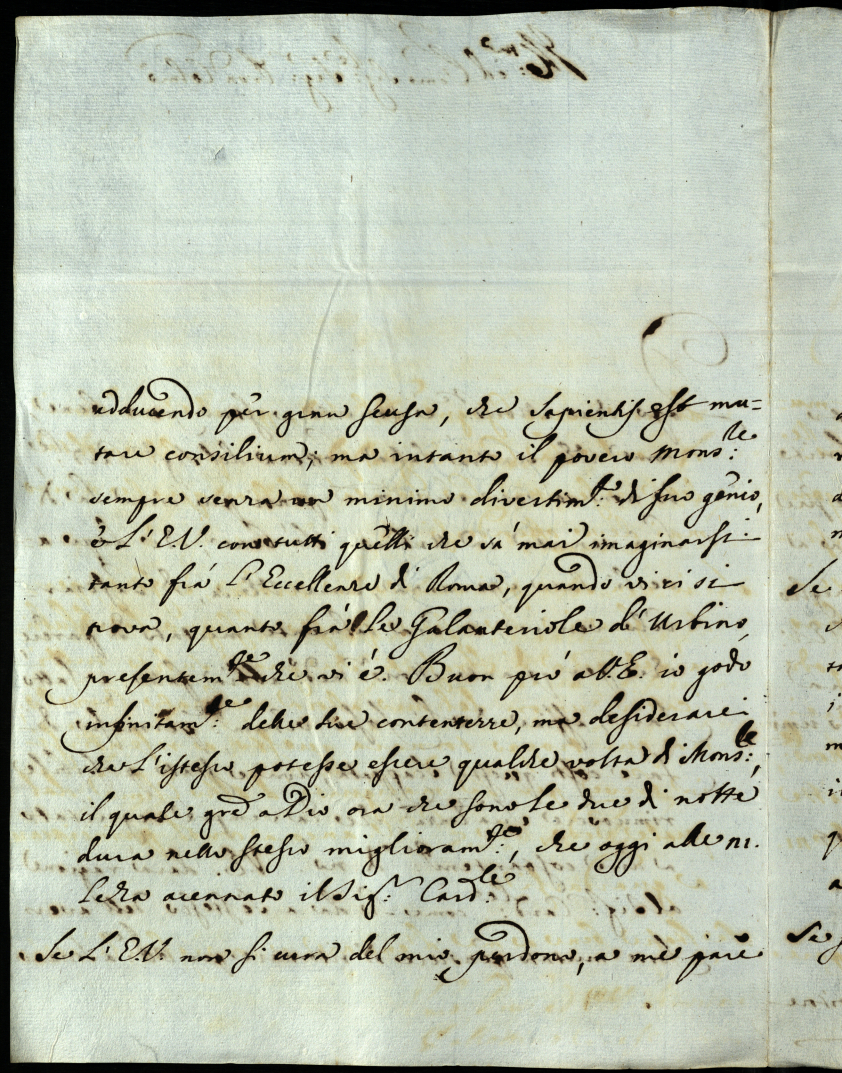 adducendo per gran scusa, che Sapientis est mu=
tare consilium; ma intanto il povero Mons:le
sempre senza un minimo divertim:to di suo genio,
è L'E.V. con tutti quelli che sà mai imaginarsi
tanto frà L'Eccellenze di Roma, quando vi ci si
trova, quanto frà Le Galanteriole d'Urbino,
presentem:te che vi é. Buon prò a V.E. io godo
infinitam:te delle sue contentezze, ma desiderarei
che L'istesso potesse essere qualche volta di Mons:le,
il quale grã a Dio ora che sono le due di notte
dura nello stesso miglioram:to, che oggi alle
Le ha acennato il Sig:r Card:le
Se L'E.V. non si cura del mio perdono, a me pare